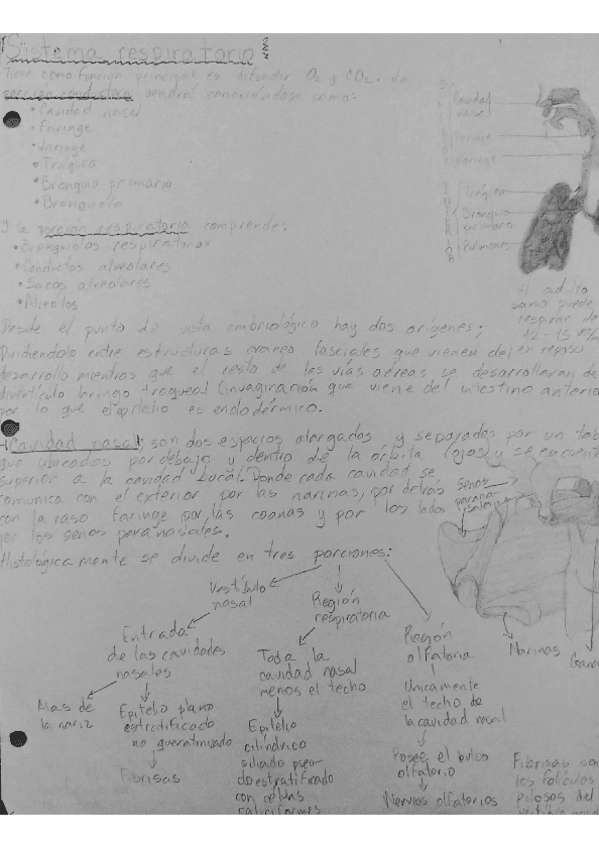 Sistema respiratorio
Tiene como función principal es difundir O₂ y CO₂. La
porción conductora vendrá conociéndose como:
• Cavidad nasal
• Faringe
• Laringe
• Tráquea
• Bronquio primario
• Bronquiolo
Y la porción respiratoria comprende:
• Bronquiolos respiratorios
• Conductos alveolares
• Sacos alveolares
• Alveolos
Cavidad
nasal
Faringe
Laringe
Tráquea
Bronquio
primario
Pulmones
El adulto
sano puede
respirar de
12-15
en reposo
Desde el punto de vista embriológico hay dos orígenes;
Dividiendolo entre estructuras craneo fasciales que vienen del
desarrollo mientras que el resto de las vías aéreas se desarrollaran de
divertículo laringo traqueal (invaginación que viene del intestino anterio
por lo que el epitelio es endodérmico.
Cavidad nasal: son dos espacios alargados y separados por un
que ubicados por debajo y dentro de la órbita (ojos) y se
superior a la cavidad bucal. Donde cada cavidad se
comunica con el exterior por las narinas, por detrás
con la naso faringe por las coanas y por los lados
por los senos paranasales.
Senos
Histológicamente se divide en tres porciones:
Vestíbulo
nasal
Región
respiratoria
Región
olfatoria
Narinas
Entrada
de las cavidades
nasales
Toda la
cavidad nasal
menos el techo
Unicamente
el techo de
la cavidad nasal
Alas de
la nariz
Epitelio plano
estratificado
no queratinizado
Fibrisas
Epitelio
cilíndrico
ciliado pseu-
doestratificado
con células
caliciformes
Posee el bulbo
olfatorio
Nervios olfatorios
Fibrisas son
los folículos
pilosos del